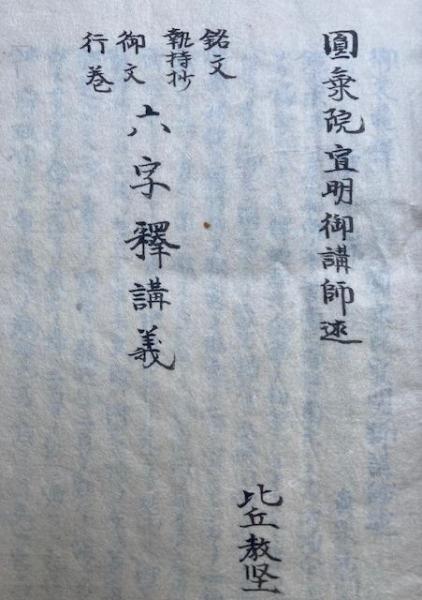 圓乗院宣明御講師述
銘文
執持抄
御文
行巻
六字釋講義
比丘教坚